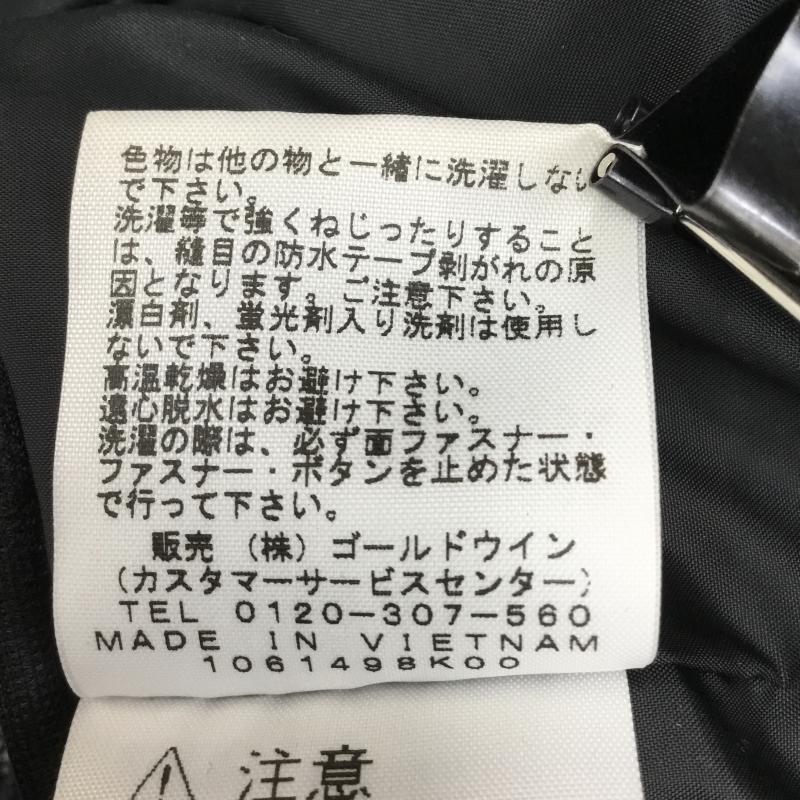 色物は他の物と一緒に洗濯しない
で下さい。
洗濯等で強くねじったりすること
は、縫目の防水テープ剥がれの原
因となります。ご注意下さい。
漂白剤、蛍光剤入り洗剤は使用し
ないで下さい。
高温乾燥はお避け下さい。
遠心脱水はお避け下さい。
洗濯の際は、必ず面ファスナー・
ファスナー・ボタンを止めた状態
で行って下さい。
販売 （株）ゴールドウイン
（カスタマーサービスセンター）
TEL 0120-307-560
MADE IN VIETNAM
1061498K00
注意